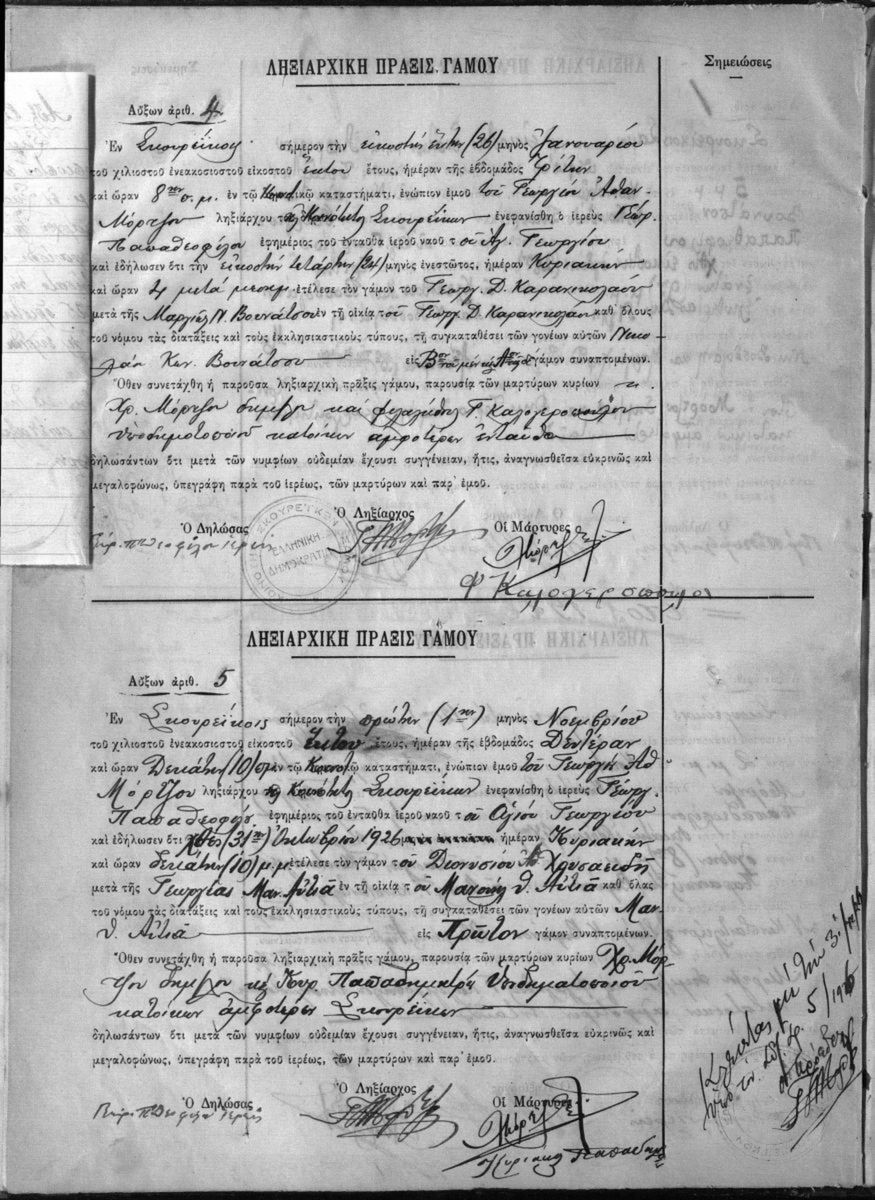 ΛΗΞΙΑΡΧΙΚΗ ΠΡΑΞΙΣ ΓΑΜΟΥ
Σημειώσεις
Αὔξων ἀριθ. 4
Ἐν Σκουρέϊκοις σήμερον τὴν εἰκοστήν ἕκτην (26) μηνὸς Ἰανουαρίου
τοῦ χιλιοστοῦ ἐνεακοσιοστοῦ εἰκοστοῦ ἕκτου ἔτους, ἡμέραν τῆς ἑβδομάδος Τρίτην
καὶ ὥραν 8ην π. μ. ἐν τῷ Κοινοτικῷ καταστήματι, ἐνώπιον ἐμοῦ τοῦ Γεωργίου Ἀθαν.
Μόρτζου ληξιάρχου τῆς Κοινότητος Σκουρέϊκων ἐνεφανίσθη ὁ ἱερεὺς Γεώρ.
Παπαθεοφίλου ἐφημέριος τοῦ ἐνταῦθα ἱεροῦ ναοῦ τοῦ Ἁγ. Γεωργίου
καὶ ἐδήλωσεν ὅτι τὴν εἰκοστήν τετάρτην (24) μηνὸς ἐνεστῶτος, ἡμέραν Κυριακήν
καὶ ὥραν 4 μετά μεσημ. ἐτέλεσε τὸν γάμον τοῦ Γεωργ. Δ. Καρανικολάου
μετὰ τῆς Ν. Βουνάτσου ἐν τῇ οἰκίᾳ τοῦ Γεωργ. Δ. Καρανικολάου καθ' ὅλους
τοῦ νόμου τὰς διατάξεις καὶ τοὺς ἐκκλησιαστικοὺς τύπους, τῇ συγκαταθέσει τῶν γονέων αὐτῶν Νικο
λάου Κων. Βουνάτσου εἰς γάμον συναπτομένων.
Ὅθεν συνετάχθη ἡ παροῦσα ληξιαρχικὴ πρᾶξις γάμου, παρουσίᾳ τῶν μαρτύρων κυρίων
Χρ. Μόρτζου δημ/λου καί Καλογεροπούλου
ὑποδηματοποιοῦ κατοίκων ἀμφοτέρων ἐνταῦθα
δηλωσάντων ὅτι μετὰ τῶν νυμφίων οὐδεμίαν ἔχουσι συγγένειαν, ἥτις, ἀναγνωσθεῖσα εὐκρινῶς καὶ
μεγαλοφώνως, ὑπεγράφη παρὰ τοῦ ἱερέως, τῶν μαρτύρων καὶ παρ' ἐμοῦ.
Ὁ Δηλώσας Ὁ Ληξίαρχος Οἱ Μάρτυρες
ΕΛΛΗΝΙΚΗ
ΔΗΜΟΚΡΑΤΙΑ
Φ Καλογερόπουλος
ΛΗΞΙΑΡΧΙΚΗ ΠΡΑΞΙΣ ΓΑΜΟΥ
Αὔξων ἀριθ. 5
Ἐν Σκουρέϊκοις σήμερον τὴν πρώτην (1ην) μηνὸς Νοεμβρίου
τοῦ χιλιοστοῦ ἐνεακοσιοστοῦ εἰκοστοῦ ἕκτου ἔτους, ἡμέραν τῆς ἑβδομάδος Δευτέραν
καὶ ὥραν Δεκάτην (10) ἐν τῷ Κοινοτικῷ καταστήματι, ἐνώπιον ἐμοῦ τοῦ Γεωργίου Ἀθ
Μόρτζου ληξιάρχου τῆς Κοινότητος Σκουρέϊκων ἐνεφανίσθη ὁ ἱερεὺς Γεώργ.
Παπαθεοφίλου ἐφημέριος τοῦ ἐνταῦθα ἱεροῦ ναοῦ τοῦ Ἁγίου Γεωργίου
καὶ ἐδήλωσεν ὅτι χθές (31ην) Ὀκτωβρίου 1926 ἡμέραν Κυριακήν
καὶ ὥραν δεκάτην (10) μ. μ. ἐτέλεσε τὸν γάμον τοῦ Διονυσίου Χρυσαειδῆ
μετὰ τῆς Γεωργίας Μαν. ἐν τῇ οἰκίᾳ τοῦ Μανουήλ καθ' ὅλας
τοῦ νόμου τὰς διατάξεις καὶ τοὺς ἐκκλησιαστικοὺς τύπους, τῇ συγκαταθέσει τῶν γονέων αὐτῶν Μαν.
εἰς Πρῶτον γάμον συναπτομένων.
Ὅθεν συνετάχθη ἡ παροῦσα ληξιαρχικὴ πρᾶξις γάμου, παρουσίᾳ τῶν μαρτύρων κυρίων Χρ. Μόρ
τζου δημ/λου Κυρ. Παπαδημητρίου ὑποδηματοποιοῦ
κατοίκων ἀμφοτέρων Σκουρέϊκων
δηλωσάντων ὅτι μετὰ τῶν νυμφίων οὐδεμίαν ἔχουσι συγγένειαν, ἥτις, ἀναγνωσθεῖσα εὐκρινῶς καὶ
μεγαλοφώνως, ὑπεγράφη παρὰ τοῦ ἱερέως, τῶν μαρτύρων καὶ παρ' ἐμοῦ.
Ὁ Δηλώσας Ὁ Ληξίαρχος Οἱ Μάρτυρες